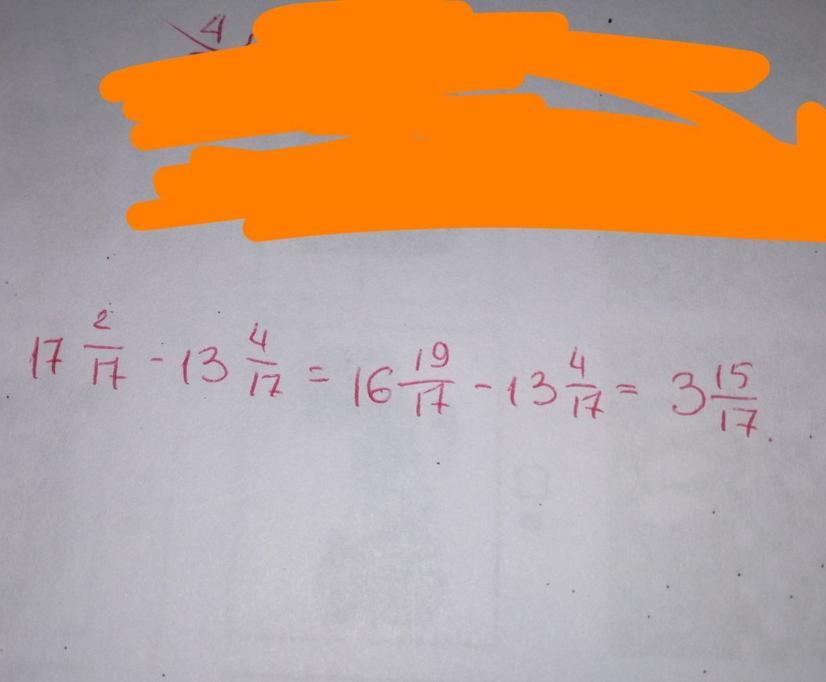 4
17 2/17 - 13 4/17 = 16 19/17 - 13 4/17 = 3 15/17.